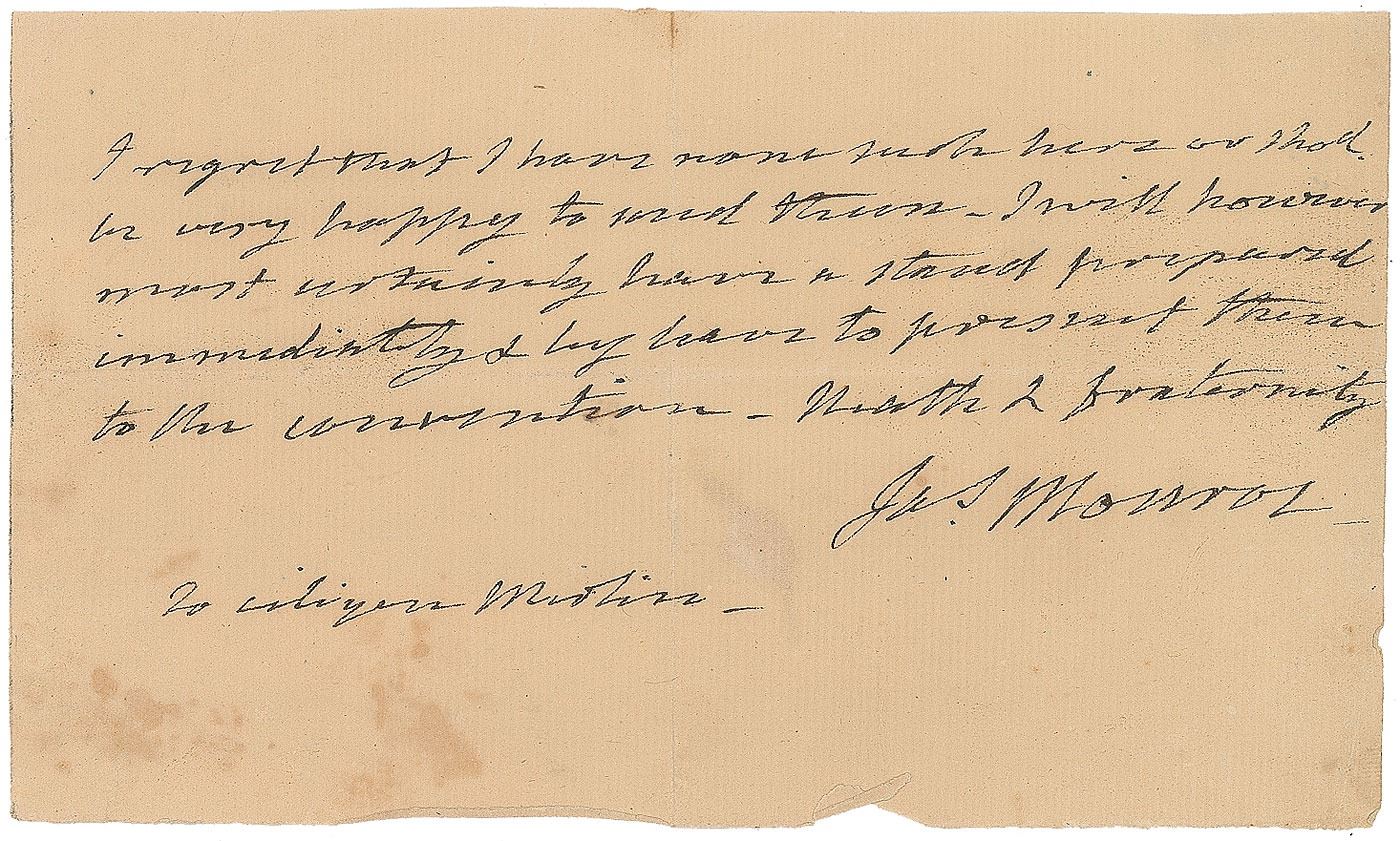 I regret that I have none such here or shod.
be very happy to send them - I will however
most certainly have a stand prepared
immediately & beg leave to present them
to the convention - Health & fraternity
Jas Monroe -
To citizen -